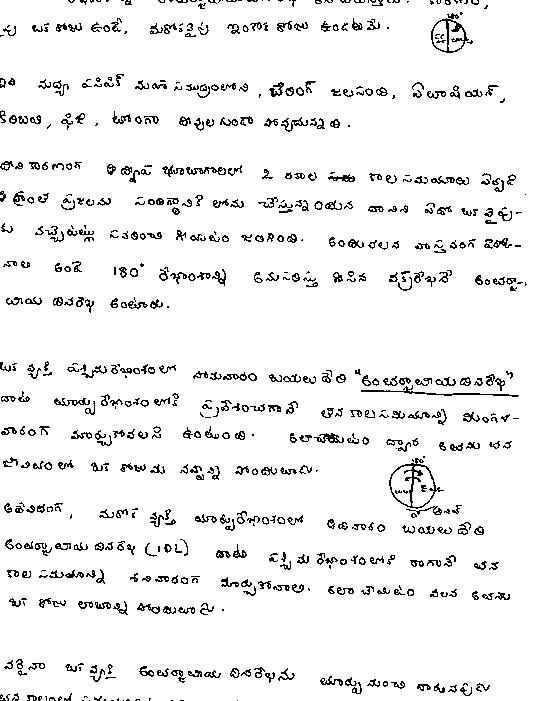 ఒక రోజు ఉంటే, మరోవైపు ఇంకొక రోజు ఉంటుంది.
180°
మధ్య పసిఫిక్ మహా సముద్రంలోని, బేరింగ్ జలసంధి, ఏలూషియన్,
కిరిబతి, ఫిజి, టోంగా దీవుల గుండా పోవుచున్నది.
భూభాగాలలో 2 రకాల కాల సమయాలు ఏర్పడి
ప్రజలను సందిగ్ధానికి లోను చేస్తున్నాయని దానిని ఏదో ఒక వైపు-
కు వచ్చేటట్లు సవరించి గీయటం జరిగింది. అందువలన వాస్తవంగా
ఉండే 180° రేఖాంశాన్ని అనుసరిస్తూ గీసిన వక్రరేఖనే అంతర్జా-
తీయ దినరేఖ అంటారు.
ఒక వ్యక్తి పశ్చిమ రేఖాంశంలో సోమవారం బయలు దేరి "అంతర్జాతీయ దినరేఖ"
దాటి తూర్పు రేఖాంశంలోకి ప్రవేశించగానే తన కాల సమయాన్ని మంగళ-
వారంగా మార్చుకోవలసి ఉంటుంది. ఇలా చేయటం ద్వారా అతను తన
జీవితంలో ఒక రోజును నష్టాన్ని పొందుతాడు.
180°
0°
అదేవిధంగా, మరొక వ్యక్తి తూర్పురేఖాంశంలో ఆదివారం బయలుదేరి
అంతర్జాతీయ దినరేఖ (IDL) దాటి పశ్చిమ రేఖాంశంలోకి రాగానే తన
కాల సమయాన్ని శనివారంగా మార్చుకోవాలి. ఇలా చేయటం వలన అతను
ఒక రోజు లాభాన్ని పొందుతాడు.
ఎవరైనా ఒక వ్యక్తి అంతర్జాతీయ దినరేఖను తూర్పు నుంచి దాటునపుడు